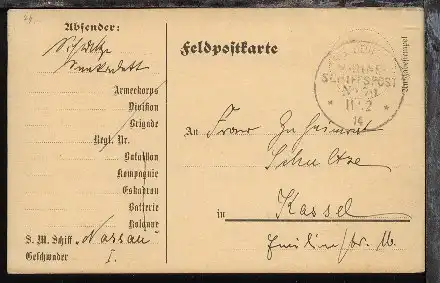 Absender:
Schultze
Seekadett
Armeekorps
Division
Brigade
Regt. Nr.
Bataillon
Kompagnie
Eskadron
Batterie
Kolonne
S. M. Schiff „Nassau"
Geschwader I.
Feldpostkarte
MARINE-
SCHIFFSPOST
No
* 11 12 *
14
An Frau Geheimrat
Schultze
in Kassel
Emilienstr.